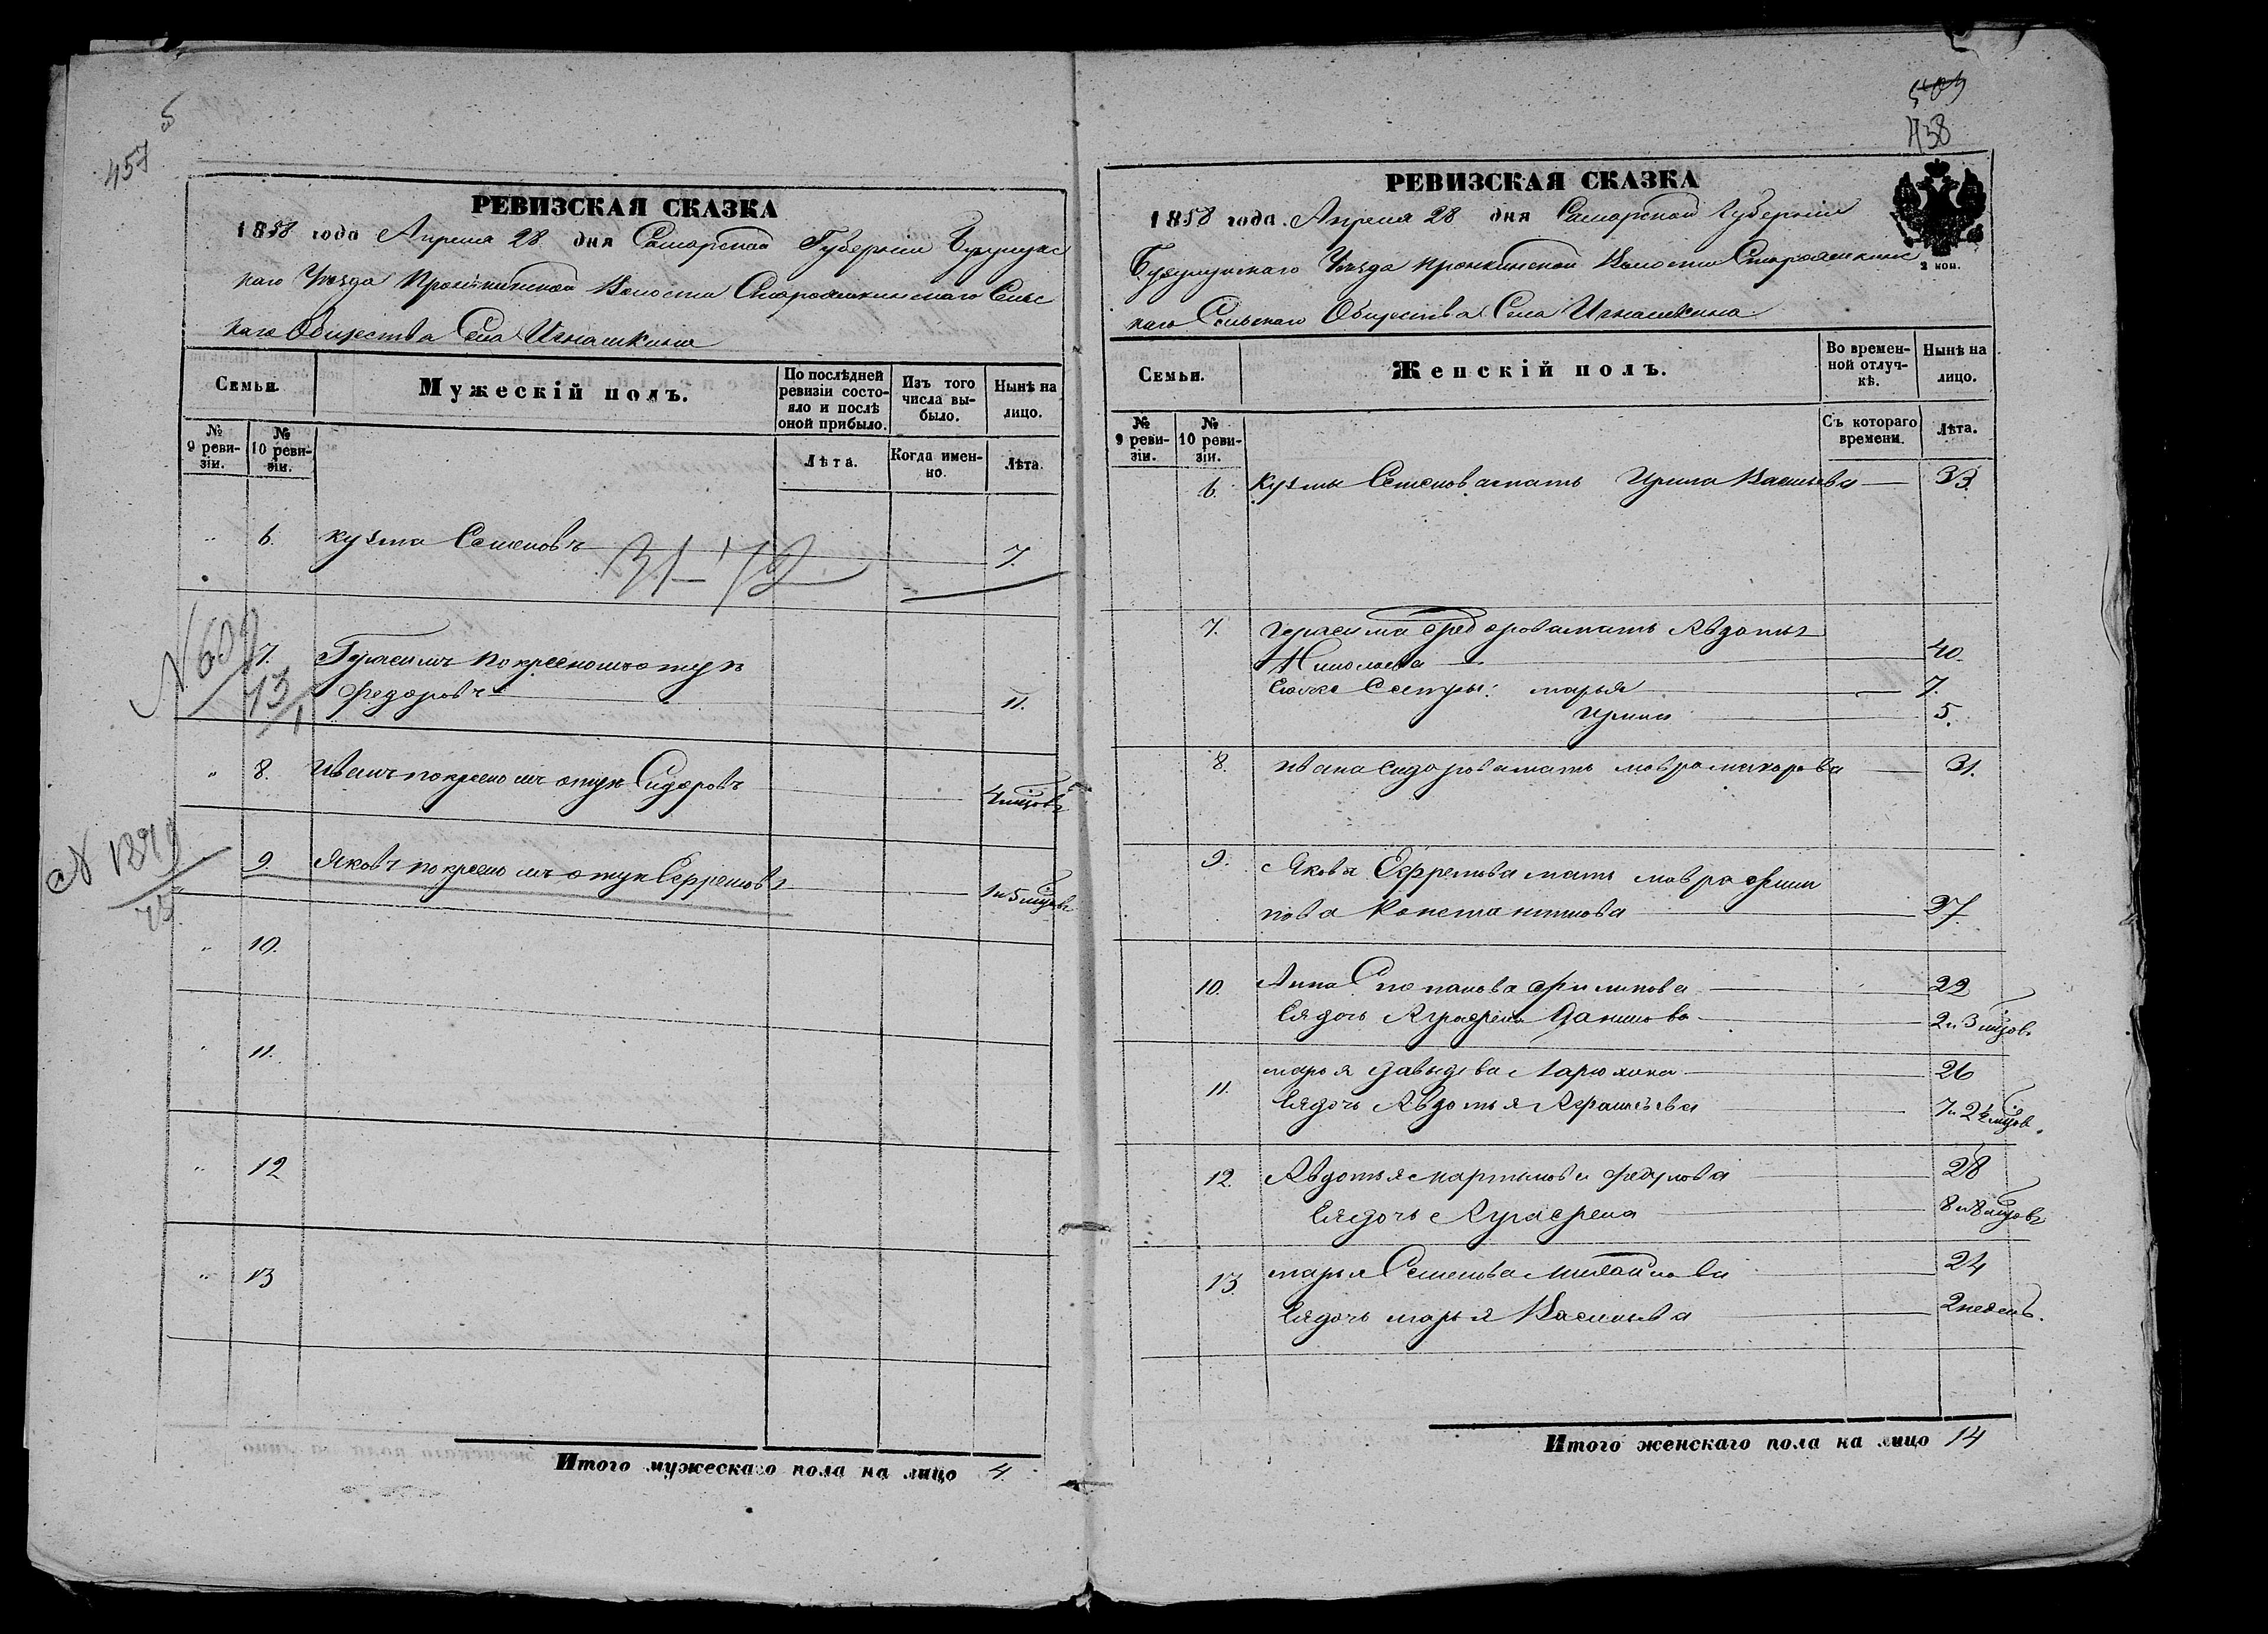 457
5
РЕВИЗСКАЯ СКАЗКА
1858 года Апреля 28 дня Самарской Губернии Бузулукс
каго Уезда Пронькинской Волости Староашкинскаго Сельс
каго Общества Села Игнашкина
Семьи.
Мужескій полъ.
По послѣдней ревизіи состояло и послѣ оной прибыло.
Изъ того числа выбыло.
Нынѣ на лицо.
№ 9 ревизіи.
№ 10 ревизіи.
Лѣта.
Когда именно.
Лѣта.
" 6. Кузма Семеновъ 7.
31-72
N 609
73/1
7. Герасимъ по кресномъ отцѣ
Федоровъ 11.
" 8. Иванъ по кресномъ отцѣ Сидоровъ 4 мцовъ
N 1379
75
9 Яковъ по кресномъ отцѣ Ефремовъ 1 и 5 мцовъ
" 10.
" 11.
" 12
" 13
Итого мужескаго пола на лицо 4.
509
438
РЕВИЗСКАЯ СКАЗКА
1858 года Апреля 28 дня Самарской Губернии
Бузулукскаго Уезда Пронкинской Волости Староашкинс
каго Сельскаго Общества Села Игнашкина
2 коп.
Семьи.
Женскій полъ.
Во временной отлучкѣ.
Нынѣ на лицо.
№ 9 ревизіи.
№ 10 ревизіи.
Съ котораго времени.
Лѣта.
6. Кузмы Семенова мать Ирина Васильева 33.
7. Герасима Федорова мать Авдотья
Николаева 40.
Сестры: марья 7.
Ирина 5.
8. ивана сидорова мать мавра макарова 31.
9. Якова Ефремова мать мавра филип
пова Константинова 27.
10. Анна Степанова филипова 22
Ея дочь Аграфена Данилова 2 и 3 мцов
11. марья давыдова Ларюхина 26
Ея дочь Авдотья 7 и 2 1/2 мцов.
12. Авдотья мартынова федулова 28
Ея дочь Аграфена 8 и 8 мцовъ
13. марья Семенова михайлова 24
Ея дочь марья Васильева 2 недель.
Итого женскаго пола на лицо 14